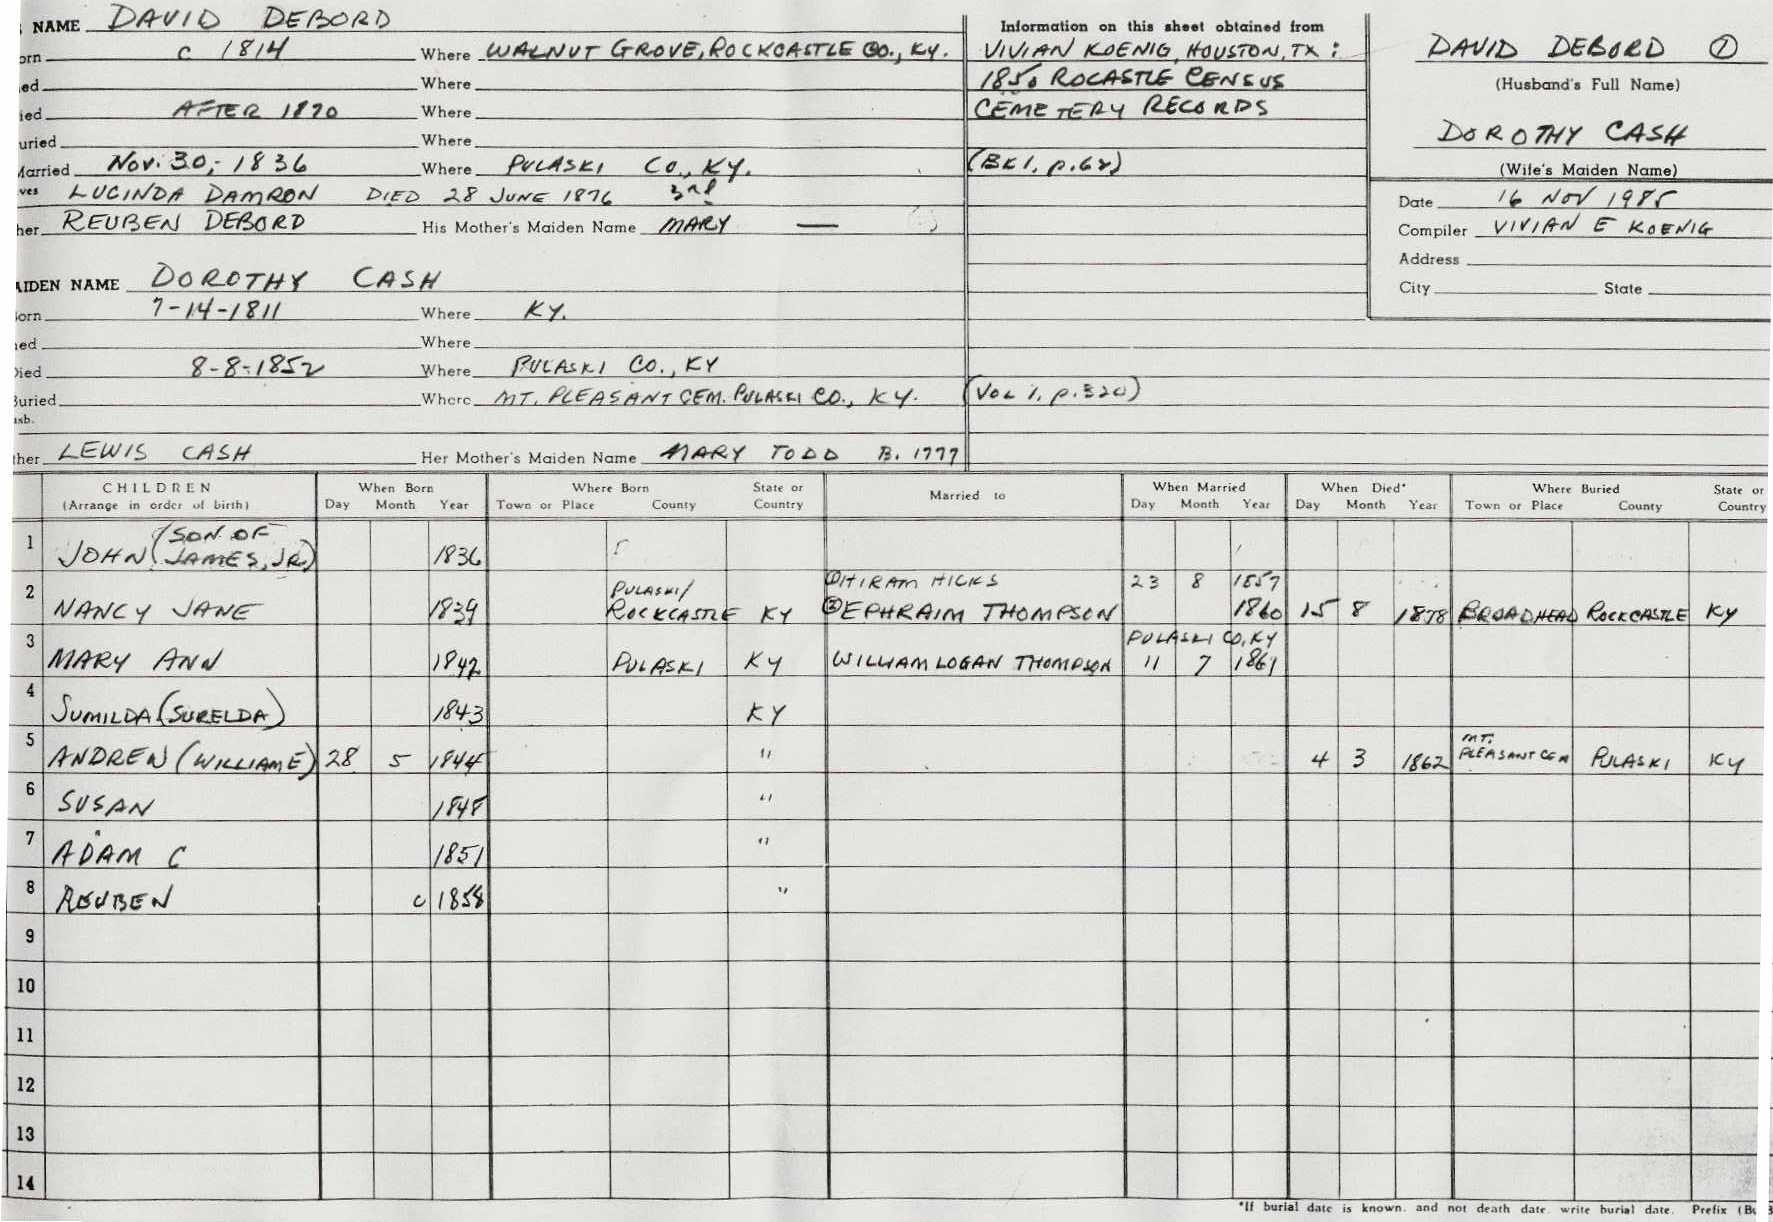 NAME DAVID DEBORD
orn c 1814 Where WALNUT GROVE, ROCKCASTLE CO., KY.
ed Where
ied AFTER 1870 Where
uried Where
Married Nov. 30, - 1836 Where PULASKI CO., KY.
ves LUCINDA DAMRON DIED 28 JUNE 1876 3rd
her REUBEN DEBORD His Mother's Maiden Name MARY —
AIDEN NAME DOROTHY CASH
orn 7-14-1811 Where KY.
ned Where
Died 8-8-1852 Where PULASKI CO., KY
Buried Where MT. PLEASANT CEM. PULASKI CO., KY.
usb.
ther LEWIS CASH Her Mother's Maiden Name MARY TODD B. 1777
Information on this sheet obtained from
VIVIAN KOENIG, HOUSTON, TX:
1850 ROCASTLE CENSUS
CEMETERY RECORDS
(BK 1, p. 68)
(VOL 1, p. 320)
DAVID DEBORD ①
(Husband's Full Name)
DOROTHY CASH
(Wife's Maiden Name)
Date 16 NOV 1985
Compiler VIVIAN E KOENIG
Address
City State
CHILDREN When Born Where Born State or Married to When Married When Died* Where Buried State or
(Arrange in order of birth) Day Month Year Town or Place County Country Day Month Year Day Month Year Town or Place County Country
1 JOHN (SON OF JAMES, JR.) 1836
2 NANCY JANE 1839 PULASKI/ ROCKCASTLE KY ① HIRAM HICKS 23 8 1857
② EPHRAIM THOMPSON 1860 15 8 1878 BROADHEAD ROCKCASTLE KY
PULASKI CO, KY
3 MARY ANN 1842 PULASKI KY WILLIAM LOGAN THOMPSON 11 7 1861
4 SUMILDA (SURELDA) 1843 KY
5 ANDREN (WILLIAM E) 28 5 1844 " 4 3 1862 MT. PLEASANT CEM PULASKI KY
6 SUSAN 1848 "
7 ADAM C 1851 "
8 REUBEN c 1858 "
9
10
11
12
13
14
*If burial date is known, and not death date, write burial date. Prefix